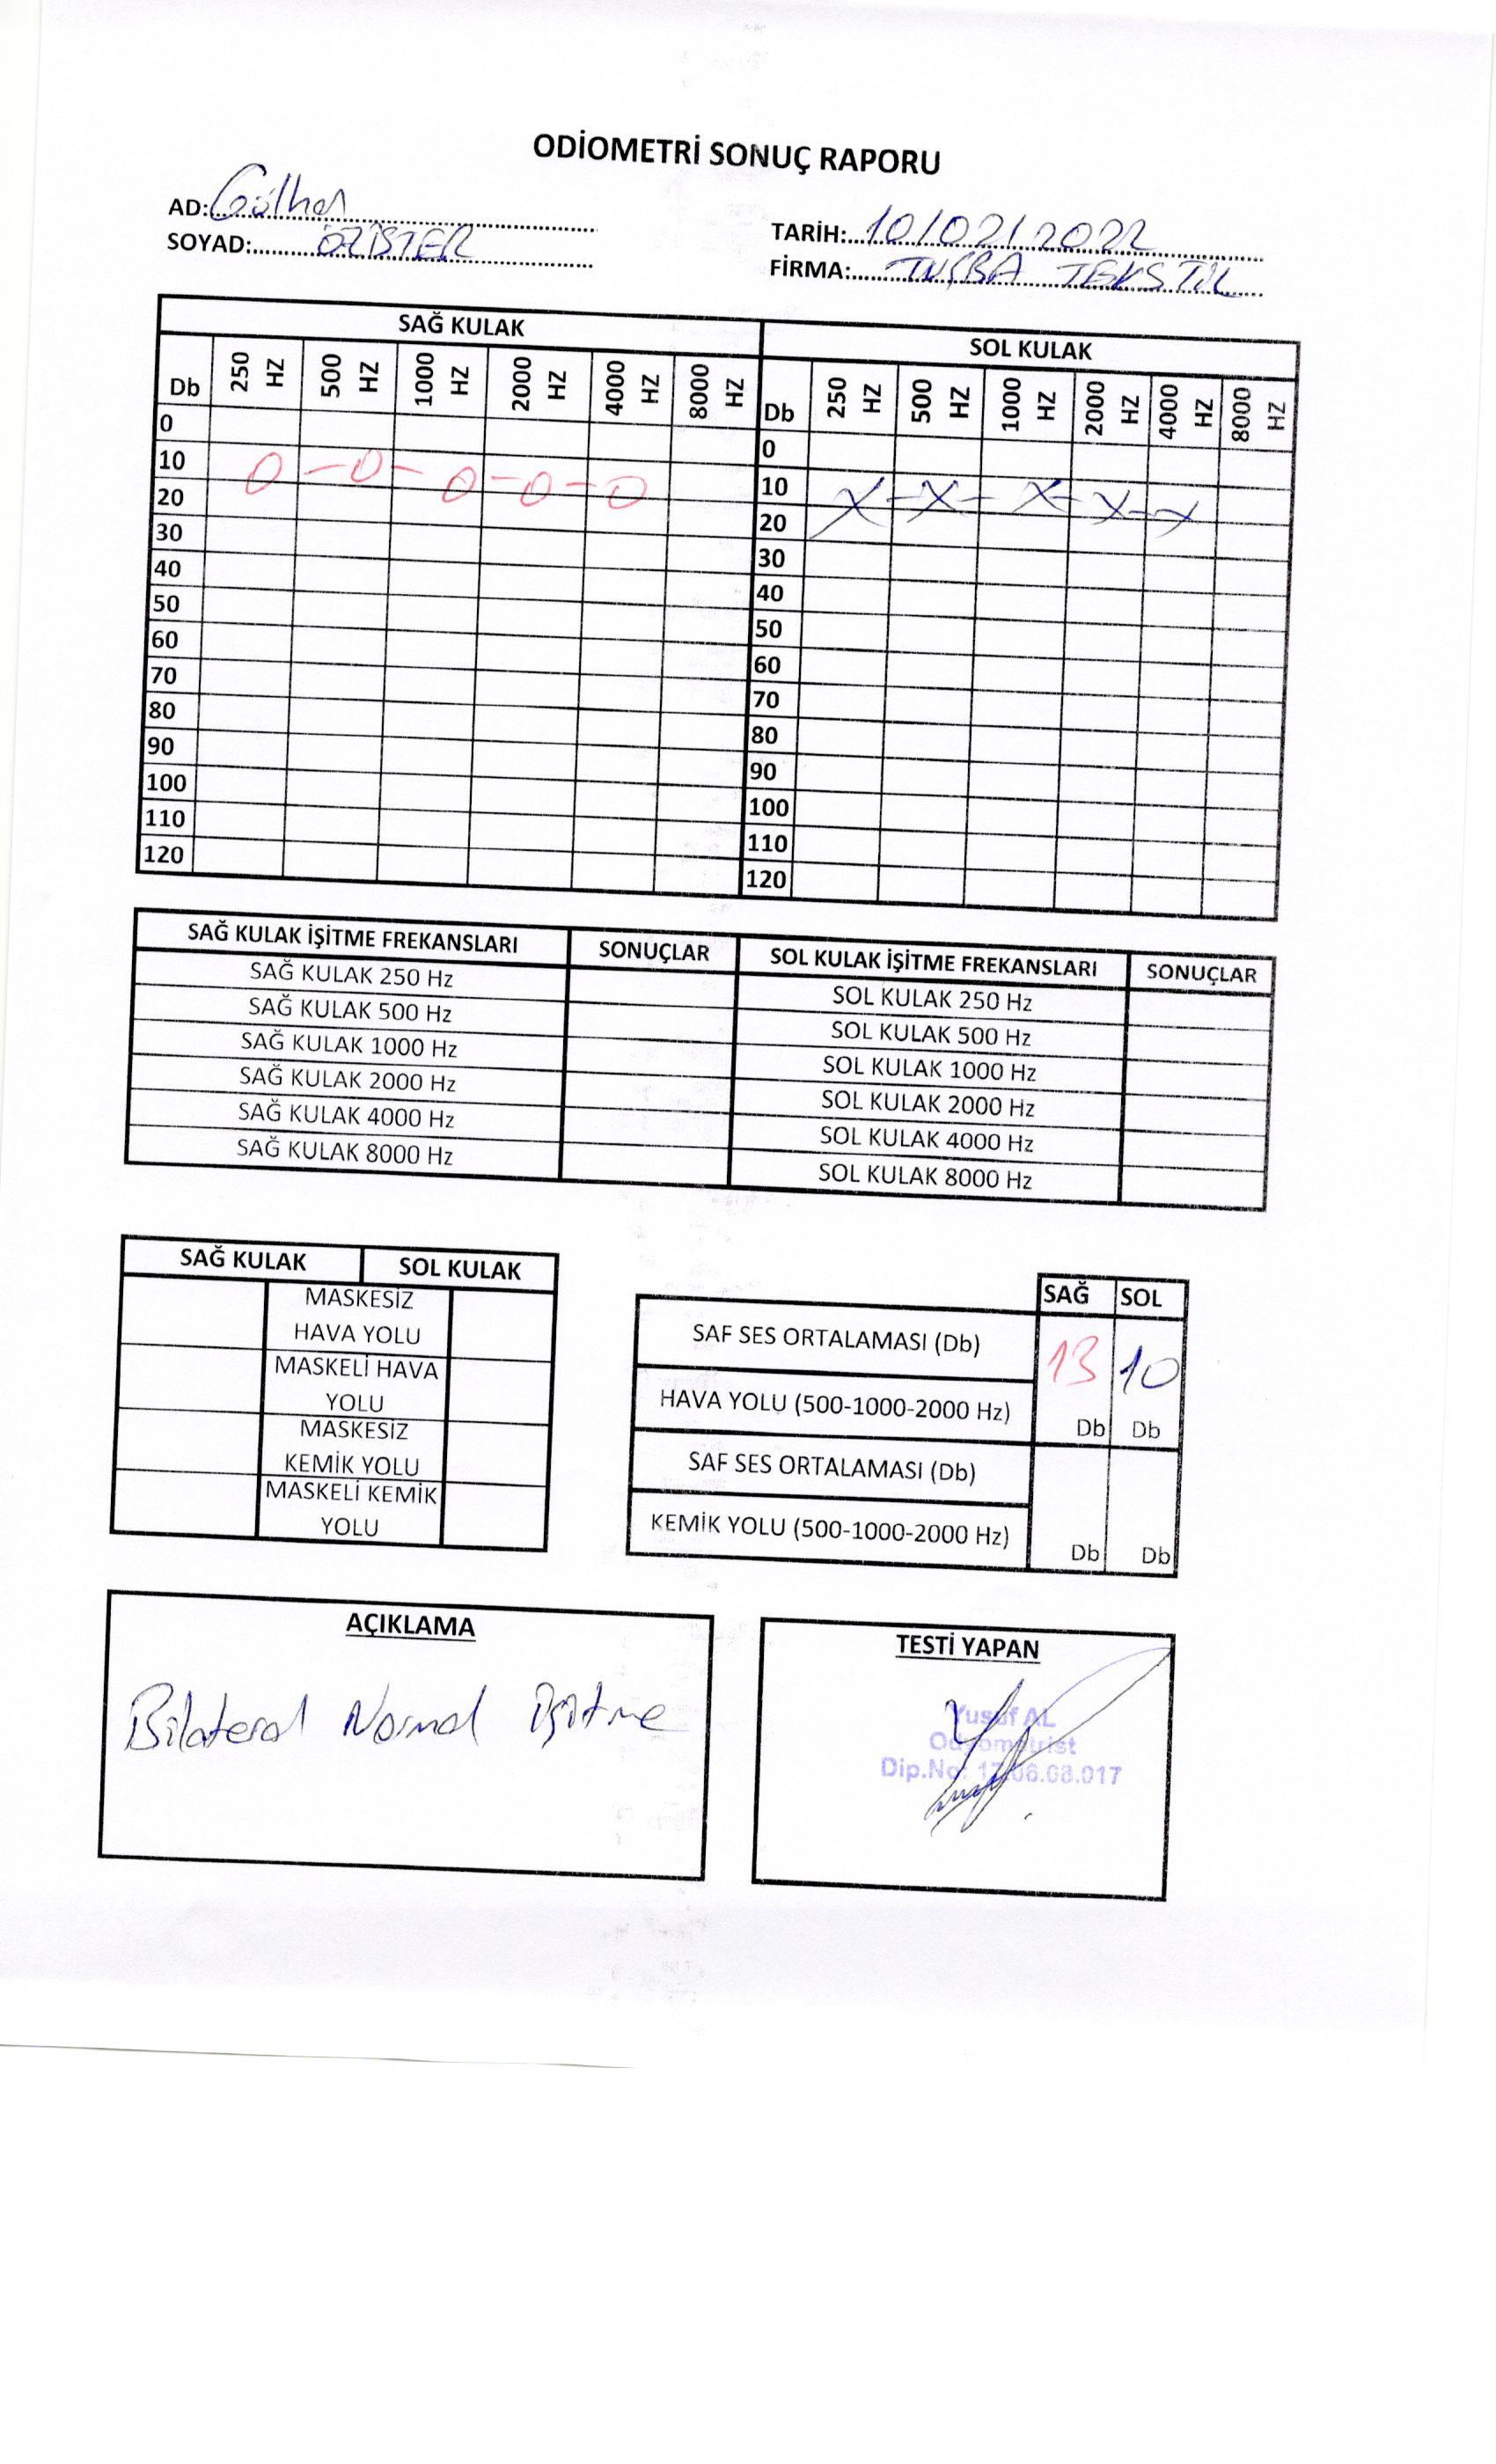 ODİOMETRİ SONUÇ RAPORU
AD:
SOYAD: ÖZİSTER
TARİH: 10/02/2022
FİRMA: TUĞBA TEKSTİL
SAĞ KULAK SOL KULAK
Db 250 HZ 500 HZ 1000 HZ 2000 HZ 4000 HZ 8000 HZ Db 250 HZ 500 HZ 1000 HZ 2000 HZ 4000 HZ 8000 HZ
0 0
10 O - O - O - O - O 10 X - X - X - X - X
20 20
30 30
40 40
50 50
60 60
70 70
80 80
90 90
100 100
110 110
120 120
SAĞ KULAK İŞİTME FREKANSLARI SONUÇLAR SOL KULAK İŞİTME FREKANSLARI SONUÇLAR
SAĞ KULAK 250 Hz SOL KULAK 250 Hz
SAĞ KULAK 500 Hz SOL KULAK 500 Hz
SAĞ KULAK 1000 Hz SOL KULAK 1000 Hz
SAĞ KULAK 2000 Hz SOL KULAK 2000 Hz
SAĞ KULAK 4000 Hz SOL KULAK 4000 Hz
SAĞ KULAK 8000 Hz SOL KULAK 8000 Hz
SAĞ KULAK SOL KULAK
MASKESİZ
HAVA YOLU
MASKELİ HAVA
YOLU
MASKESİZ
KEMİK YOLU
MASKELİ KEMİK
YOLU
SAĞ SOL
SAF SES ORTALAMASI (Db) 13 10
HAVA YOLU (500-1000-2000 Hz) Db Db
SAF SES ORTALAMASI (Db)
KEMİK YOLU (500-1000-2000 Hz) Db Db
AÇIKLAMA
Bilateral Normal İşitme
TESTİ YAPAN
Yusuf AL
Odyometrist
Dip.No: 17.06.08.017